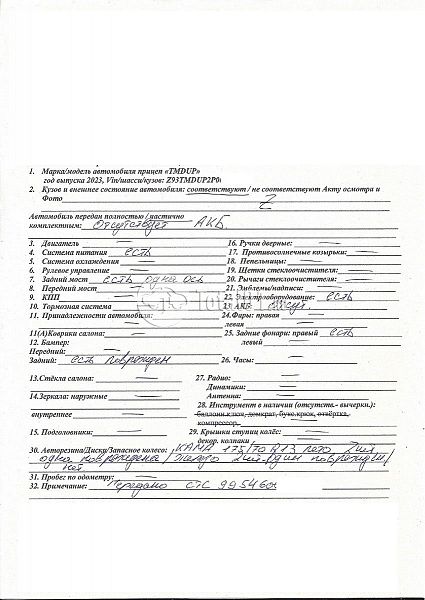 1. Марка/модель автомобиля прицеп «TMDUP»
год выпуска 2023, Vin/шасси/кузов: Z93TMDUP2P0
2. Кузов и внешнее состояние автомобиля: соответствуют / не соответствуют Акту осмотра и
Фото Z
Автомобиль передан полностью / частично
комплектным: Отсутствует АКБ.
3. Двигатель —
16. Ручки дверные: —
4. Система питания есть
17. Противосолнечные козырьки: —
5. Система охлаждения —
18. Пепельницы: —
6. Рулевое управление —
19. Щетки стеклоочистителя: —
7. Задний мост есть одна ось
20. Рычаги стеклоочистителя: —
8. Передний мост —
21. Эмблемы/надписи: —
9. КПП —
22. Электрооборудование: есть
10. Тормозная система —
23. АКБ: отсут
11. Принадлежности автомобиля:
24. Фары: правая —
левая —
11(А)Коврики салона: —
25. Задние фонари: правый есть
12. Бампер:
левый —
Передний: —
Задний: есть поврежден
26. Часы: —
13.Стёкла салона: —
27. Радио: —
Динамики: —
14.Зеркала: наружные —
Антенна: —
28. Инструмент в наличии (отсутств.- вычерки.):
внутреннее —
баллонн.ключ, домкрат, букс.крюк, отвёртка,
компрессор.
15. Подголовники: —
29. Крышки ступиц колёс: —
декор. колпаки —
30. Авторезина/Диски/Запасное колесо: КАМА 175/70 R13 лето
одна повреждена /
нет
31. Пробег по одометру: —
32. Примечание: Передано СТС 99 54 60